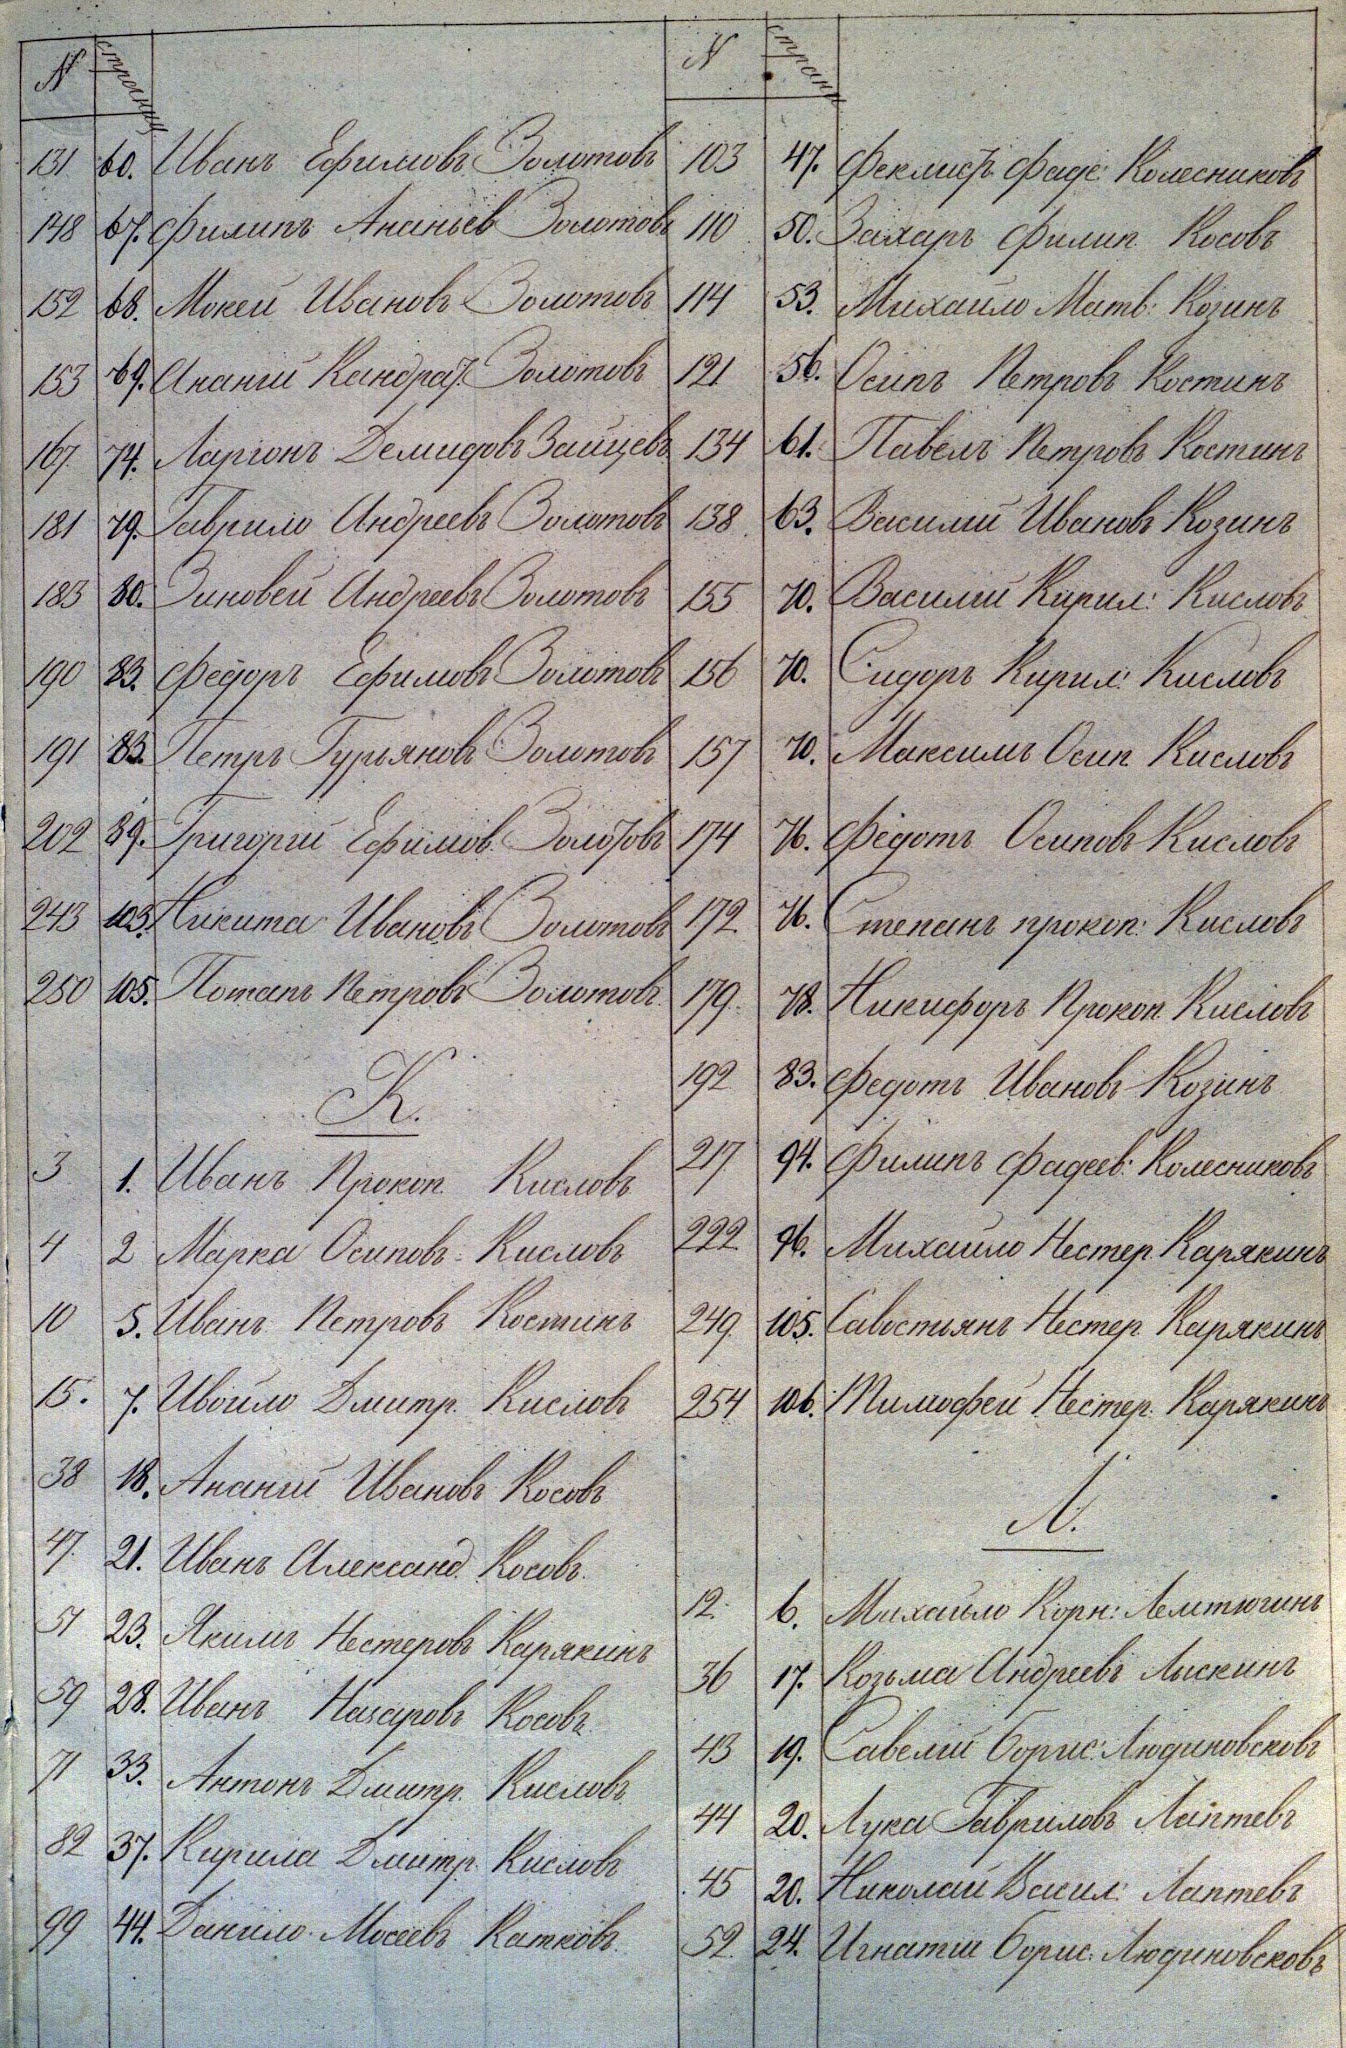 N страниц
131 60. Иванъ Ефимовъ Золотовъ
148 67. Филипъ Ананьев Золотовъ
152 68. Мокей Ивановъ Золотовъ
153 69. Ананій Кандрат. Золотовъ
167 74. Ларіонъ Демидовъ Зайцевъ
181 79. Гаврило Андреевъ Золотовъ
183 80. Зиновей Андреевъ Золотовъ
190 83. Федоръ Ефимовъ Золотовъ
191 83. Петръ Гурьяновъ Золотовъ
202 89. Григорій Ефимов. Золотовъ
243 103. Никита Ивановъ Золотовъ
250 105. Потапъ Петровъ Золотовъ
К.
3 1. Иванъ Прокоп. Кисловъ
4 2 Марка Осиповъ Кисловъ
10 5. Иванъ Петровъ Костинъ
15. 7. Ивойло Дмитр. Кисловъ
38 18. Ананій Ивановъ Косовъ
47. 21. Иванъ Александ. Косовъ
51 23. Якимъ Нестеровъ Карякинъ
59 28. Иванъ Назаровъ Косовъ
71 33. Антонъ Дмитр. Кисловъ
82 37. Кирила Дмитр. Кисловъ
99 44. Данило Мосеевъ Катковъ
N страни
103 47. Феклист. Фаде: Колесниковъ
110 50. Захаръ Филип. Косовъ
114 53. Михайло Матв: Козинъ
121 56. Осипъ Петровъ Костинъ
134 61. Павелъ Петровъ Костинъ
138 63. Василій Ивановъ Козинъ
155 70. Василій Кирил: Кисловъ
156 70. Сидоръ Кирил: Кисловъ
157 70. Максимъ Осип. Кисловъ
174 76. Федотъ Осиповъ Кисловъ
172 76. Степанъ прокоп: Кисловъ
179 78. Никифоръ Прокоп. Кисловъ
192 83. Федотъ Ивановъ Козинъ
217 94. Филипъ Фадеев: Колесниковъ
222 96. Михайло Нестер. Карякинъ
249 105. Савостьянъ Нестер. Карякинъ
254 106. Тимофей Нестер. Карякинъ
Л.
12. 6. Михайло Корн: Лемтюгинъ
36 17. Козьма Андреевъ Лыскинъ
43 19. Савелій Борис: Людиновсковъ
44 20. Лука Гавриловъ Лаптевъ
45 20. Николай Васил: Лаптевъ
52 24. Игнатій Борис. Людиновсковъ